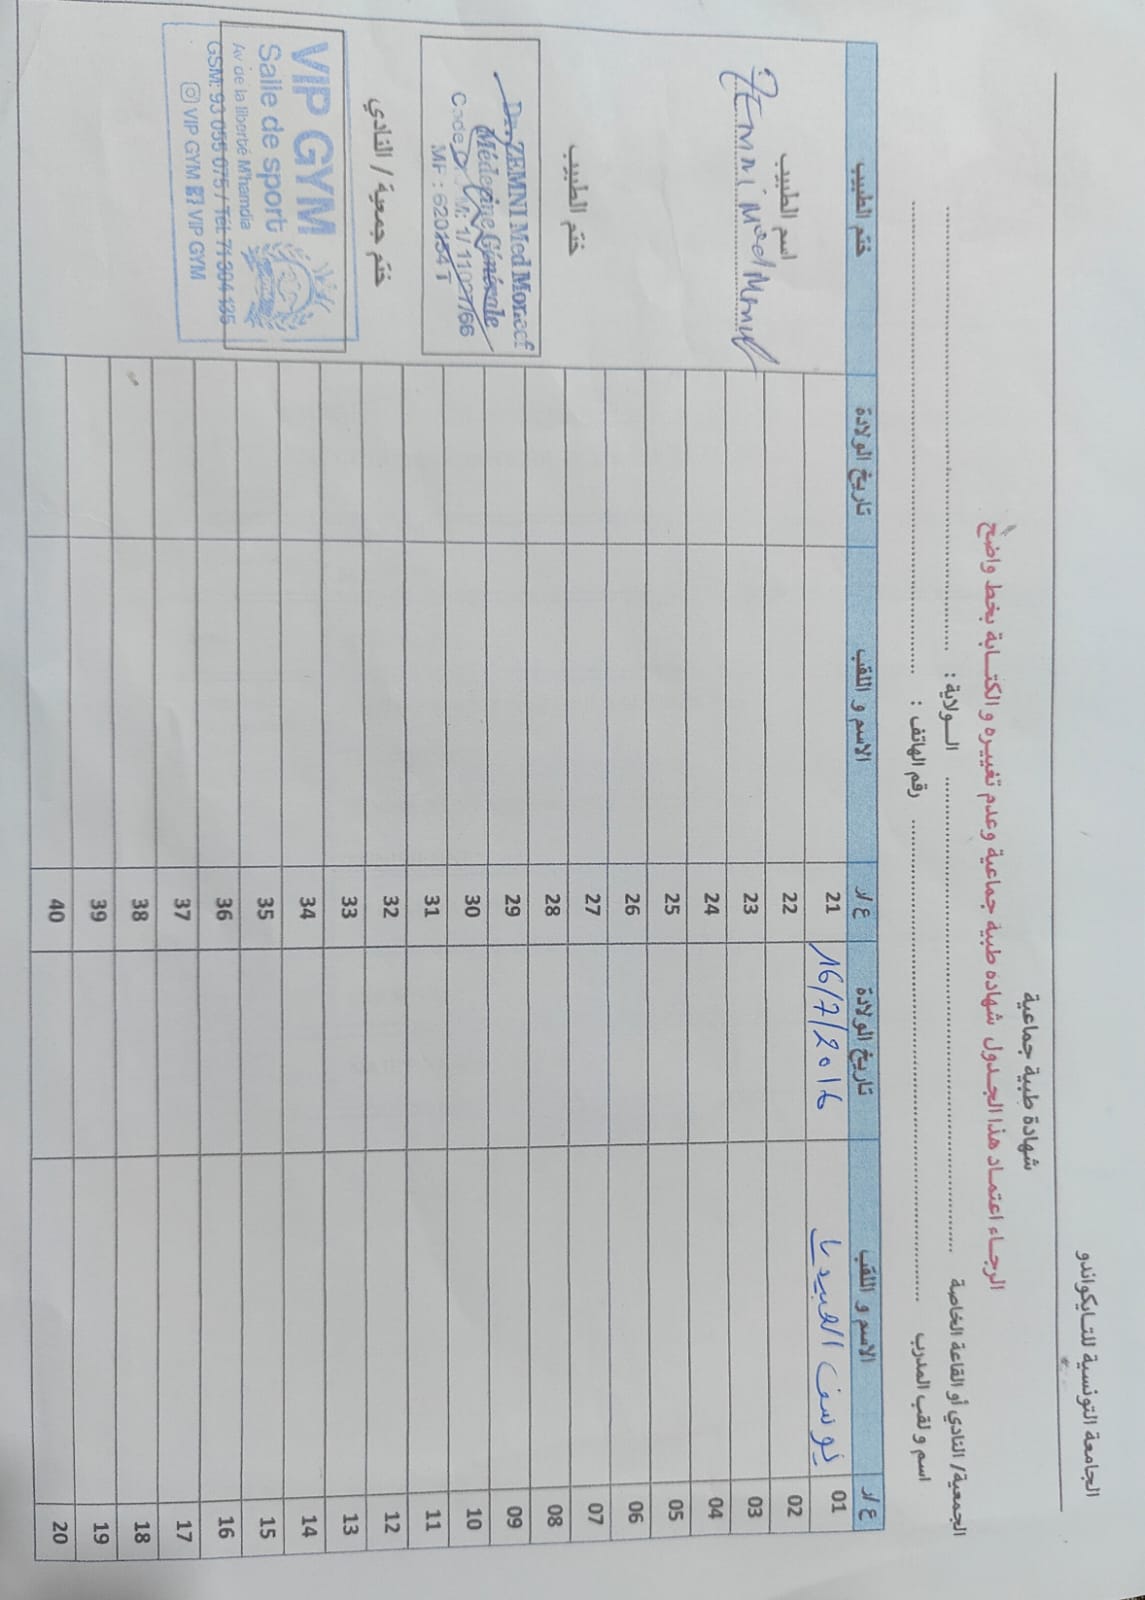 الجامعة التونسية للتايكواندو
شهادة طبية جماعية
الرجاء اعتماد هذا الجدول شهادة طبية جماعية وعدم تغييره و الكتابة بخط واضح
الجمعية/ النادي أو القاعة الخاصة الولاية :
اسم و لقب المدرب رقم الهاتف :
ع/ر الاسم و اللقب تاريخ الولادة ع/ر الاسم و اللقب تاريخ الولادة ختم الطبيب
01 يوسف العبيدي 16/7/2016 21
02 22
03 23
04 24
05 25
06 26
07 27
08 28
09 29
10 30
11 31
12 32
13 33
14 34
15 35
16 36
17 37
18 38
19 39
20 40
اسم الطبيب
Zemni Med Moncef
ختم الطبيب
Dr. ZEMNI Med Moncef
Médecine Générale
MF : 620154T
ختم جمعية / النادي
VIP GYM
Salle de sport
Av de la liberté M'hamdia
GSM: 93 055 075 / Tél: 71 304 135
VIP GYM VIP GYM